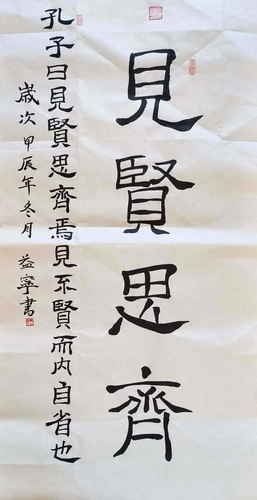 見賢思齊
孔子曰見賢思齊焉見不賢而內自省也
歲次甲辰年冬月益寧書